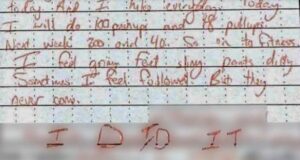 today. And I help everyday. Today
I will do 100 pushups and 48 pullups.
Next week 200 and 40. So on to fitness.
I feel going feet slug. Pants dirty.
Sometimes I feel followed. But they
never come.
I DID IT